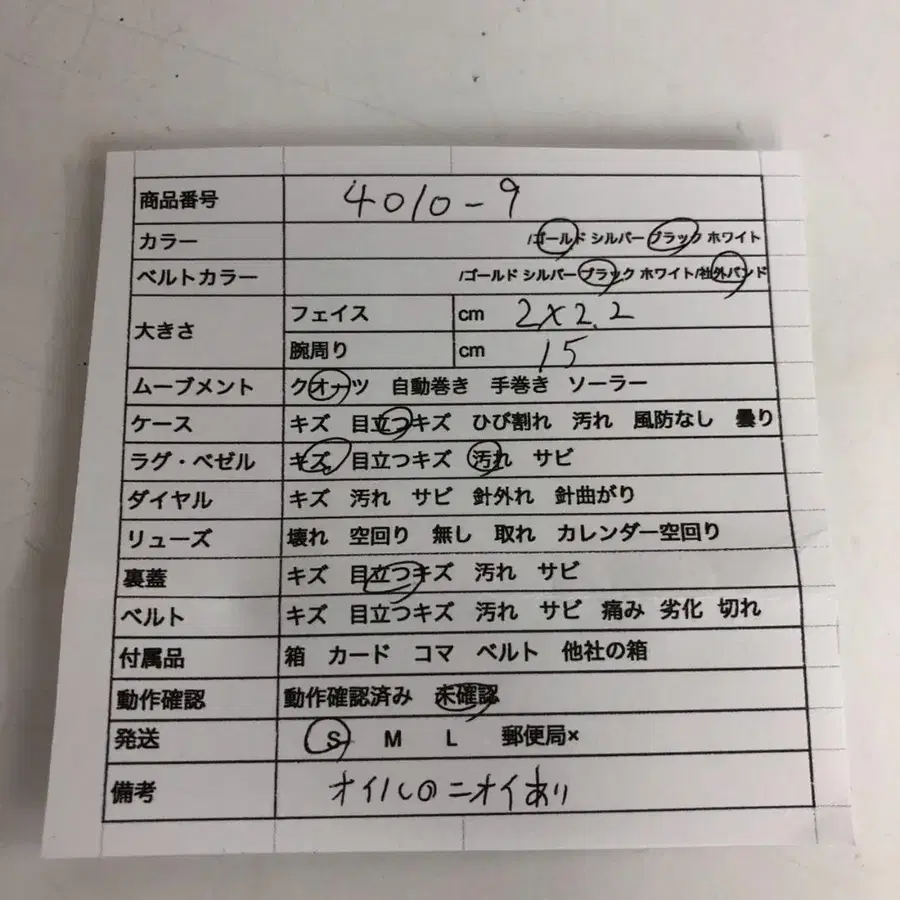 商品番号 4010-9
カラー /ゴールド シルバー ブラック ホワイト
ベルトカラー /ゴールド シルバー ブラック ホワイト/社外バンド
大きさ フェイス cm 2×2.2
腕周り cm 15
ムーブメント クオーツ 自動巻き 手巻き ソーラー
ケース キズ 目立つキズ ひび割れ 汚れ 風防なし 曇り
ラグ・ベゼル キズ 目立つキズ 汚れ サビ
ダイヤル キズ 汚れ サビ 針外れ 針曲がり
リューズ 壊れ 空回り 無し 取れ カレンダー空回り
裏蓋 キズ 目立つキズ 汚れ サビ
ベルト キズ 目立つキズ 汚れ サビ 痛み 劣化 切れ
付属品 箱 カード コマ ベルト 他社の箱
動作確認 動作確認済み 未確認
発送 S M L 郵便局×
備考 オイルのニオイあり